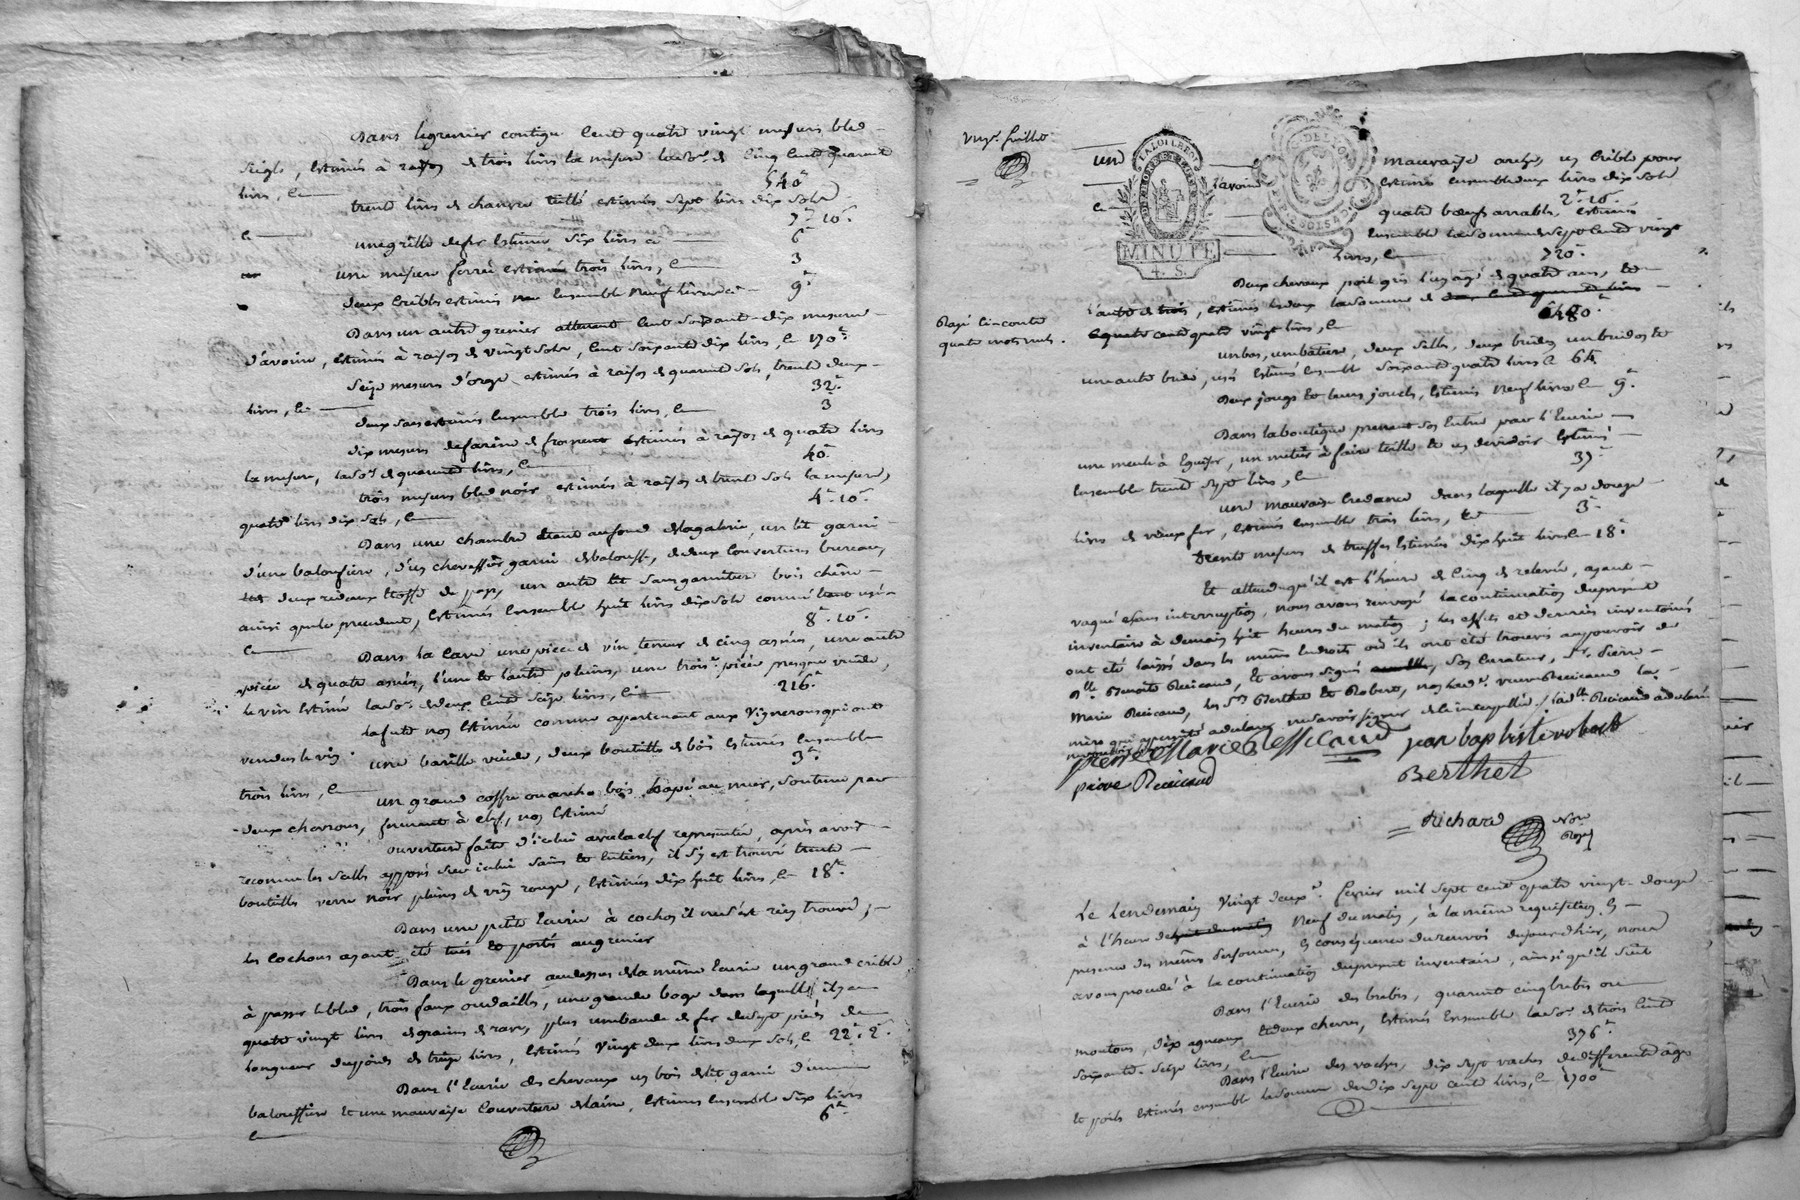 Dans le grenier contigu Cent quatre vingt mesures bled
seigle, estimés à raison de trois livres la mesure la so.e de Cinq Cent quarante
livres, Cy
540
trente livres de chanvre tillé estimés sept livres dix sols
Cy 7 10
une grille de fer Estimée six livres cy 6
une mesure ferrée estimée trois livres, Cy 3
deux Cribles estimés Ensemble neuf livres cy 9
Dans un autre grenier attenant Cent soixante-dix mesures
d'avoine, estimés à raison de vingt sols, Cent soixante dix livres, Cy 170
Seize mesures d'orge estimés à raison de quarante sols, trente deux
32
livres, Cy
deux sacs estimés Ensemble trois livres, Cy 3
dix mesures de farine de froment estimés à raison de quatre livres
40
la mesure, la so.e de quarante livres, Cy
trois mesures bled noir estimés à raison de trente sols la mesure,
4 10
quatre livres dix sols, Cy
Dans une chambre étant au fond de la galerie, un lit garni
d'une balouffière, d'un chevessier garni de balouffe, de deux Couvertures bureau,
deux rideaux Etoffe de pays, un autre lit sans garniture bois chêne
ainsi que le précédent, Estimés Ensemble huit livres dix sols comme étant usé
8 10
Cy
Dans la Cave une pièce de vin teneur de cinq asnées, une autre
pièce de quatre asnées, l'une et l'autre pleines, une trois.e pièce presque vuide,
le vin Estimé la so.e de deux Cent seize livres, Cy 216
La futé non Estimée comme appartenant aux Vignerons qui ont
vendus le vin.
une barille vuide, deux bouteilles de bois Estimés Ensemble
3
trois livres, Cy
un grand coffre ou arche bois sapé au mur, soutenu par
deux chevrons, fermant à clef, non Estimé
ouverture faite d'icelui avec la clef représentée, après avoir
reconnu les scellés apposés sur icelui sains et Entiers, il s'y est trouvé trente
bouteilles verre noir pleines de vin rouge, Estimés dix huit livres, Cy 18
Dans une petite Ecurie à cochos il ne s'est rien trouvé,
les cochons ayant été tués et portés au grenier
Dans le grenier au dessus de la même Ecurie un grand crible
à passer le bled, trois faux ou dailles, une grande boge dans laquelle il y a
quatre vingt livres de graine de raves, plus une bande de fer de sept pieds de
longueur du poids de treize livres, Estimés vingt deux livres deux sols, Cy 22 2
Dans l'Ecurie des chevaux un bois de lit garni d'une
balouffière et une mauvaise Couverture de laine, Estimés Ensemble six livres
6
Cy
Vingt.e feuillet
LA LOI LE ROI
MINUTE
4. S.
une mauvaise arche, un Crible pour
l'avoine estimés ensemble deux livres dix sols
Cy 2 10
quatre boeufs arrables, estimés
Ensemble la somme de sept Cent vingt
livres, Cy 720
Deux chevaux poil gris l'un agé de quatre ans, et
l'autre de trois, estimés les deux la somme de deux cent quarante livres
480
quatre cent quatre vingt livres, Cy
Rayé ci-contre
quatre mots nuls.
un bas, un bâtine, deux selles, deux brides un bridon et
une autre bride, usés Estimés Ensemble soixante quatre livres Cy 64
Deux jougs et leurs jouels, Estimés neuf livres Cy 9
Dans la boutique prenant son Entrée par l'Ecurie
une meule à Eguiser, un métier à faire toille et un devidoir Estimés
37
Ensemble trente sept livres, Cy
une mauvaise Credance dans laquelle il y a douze
livres de vieux fer, Estimés Ensemble trois livres, Cy 3
Trente mesures de truffes Estimés dix huit livres Cy 18
Et attendu qu'il est l'heure de Cinq de relevée, ayant
vaqué sans interruption, nous avons renvoyé la continuation du présent
inventaire à demain huit heures du matin; les effets et denrées inventoriés
ont été laissés dans les mêmes Endroits où ils ont été trouvés au pouvoir de
D.lle Benoite Ressicaud, et avons signé avec son Curateur, S.r Pierre
Marie Ressicaud, les S.rs Berthet et Robert, non lad.e veuve Ressicaud la
mère qui a persisté à déclarer ne savoir signer de ce interpellée, / lad.lle Ressicaud a déclaré
pierre Marie Ressicaud jean baptiste robert
pierre Ressicaud Berthet
Richard Not.re
Royal
Le lendemain vingt deux.e février mil sept cent quatre vingt-douze
à l'heure de huit du matin neuf du matin, à la même réquisition, En
présence des mêmes personnes, En conséquence du renvoi du jour d'hier, nous
avons procédé à la continuation du présent inventaire, ainsi qu'il suit
Dans l'Ecurie des brebis, quarante cinq brebis ou
moutons, dix agneaux et deux chevres, Estimés Ensemble la so.e de trois Cent
376
soixante-seize livres, Cy
Dans l'Ecurie des vaches, dix sept vaches de différents âges
et poils estimés ensemble la somme de dix sept cent livres, Cy 1700